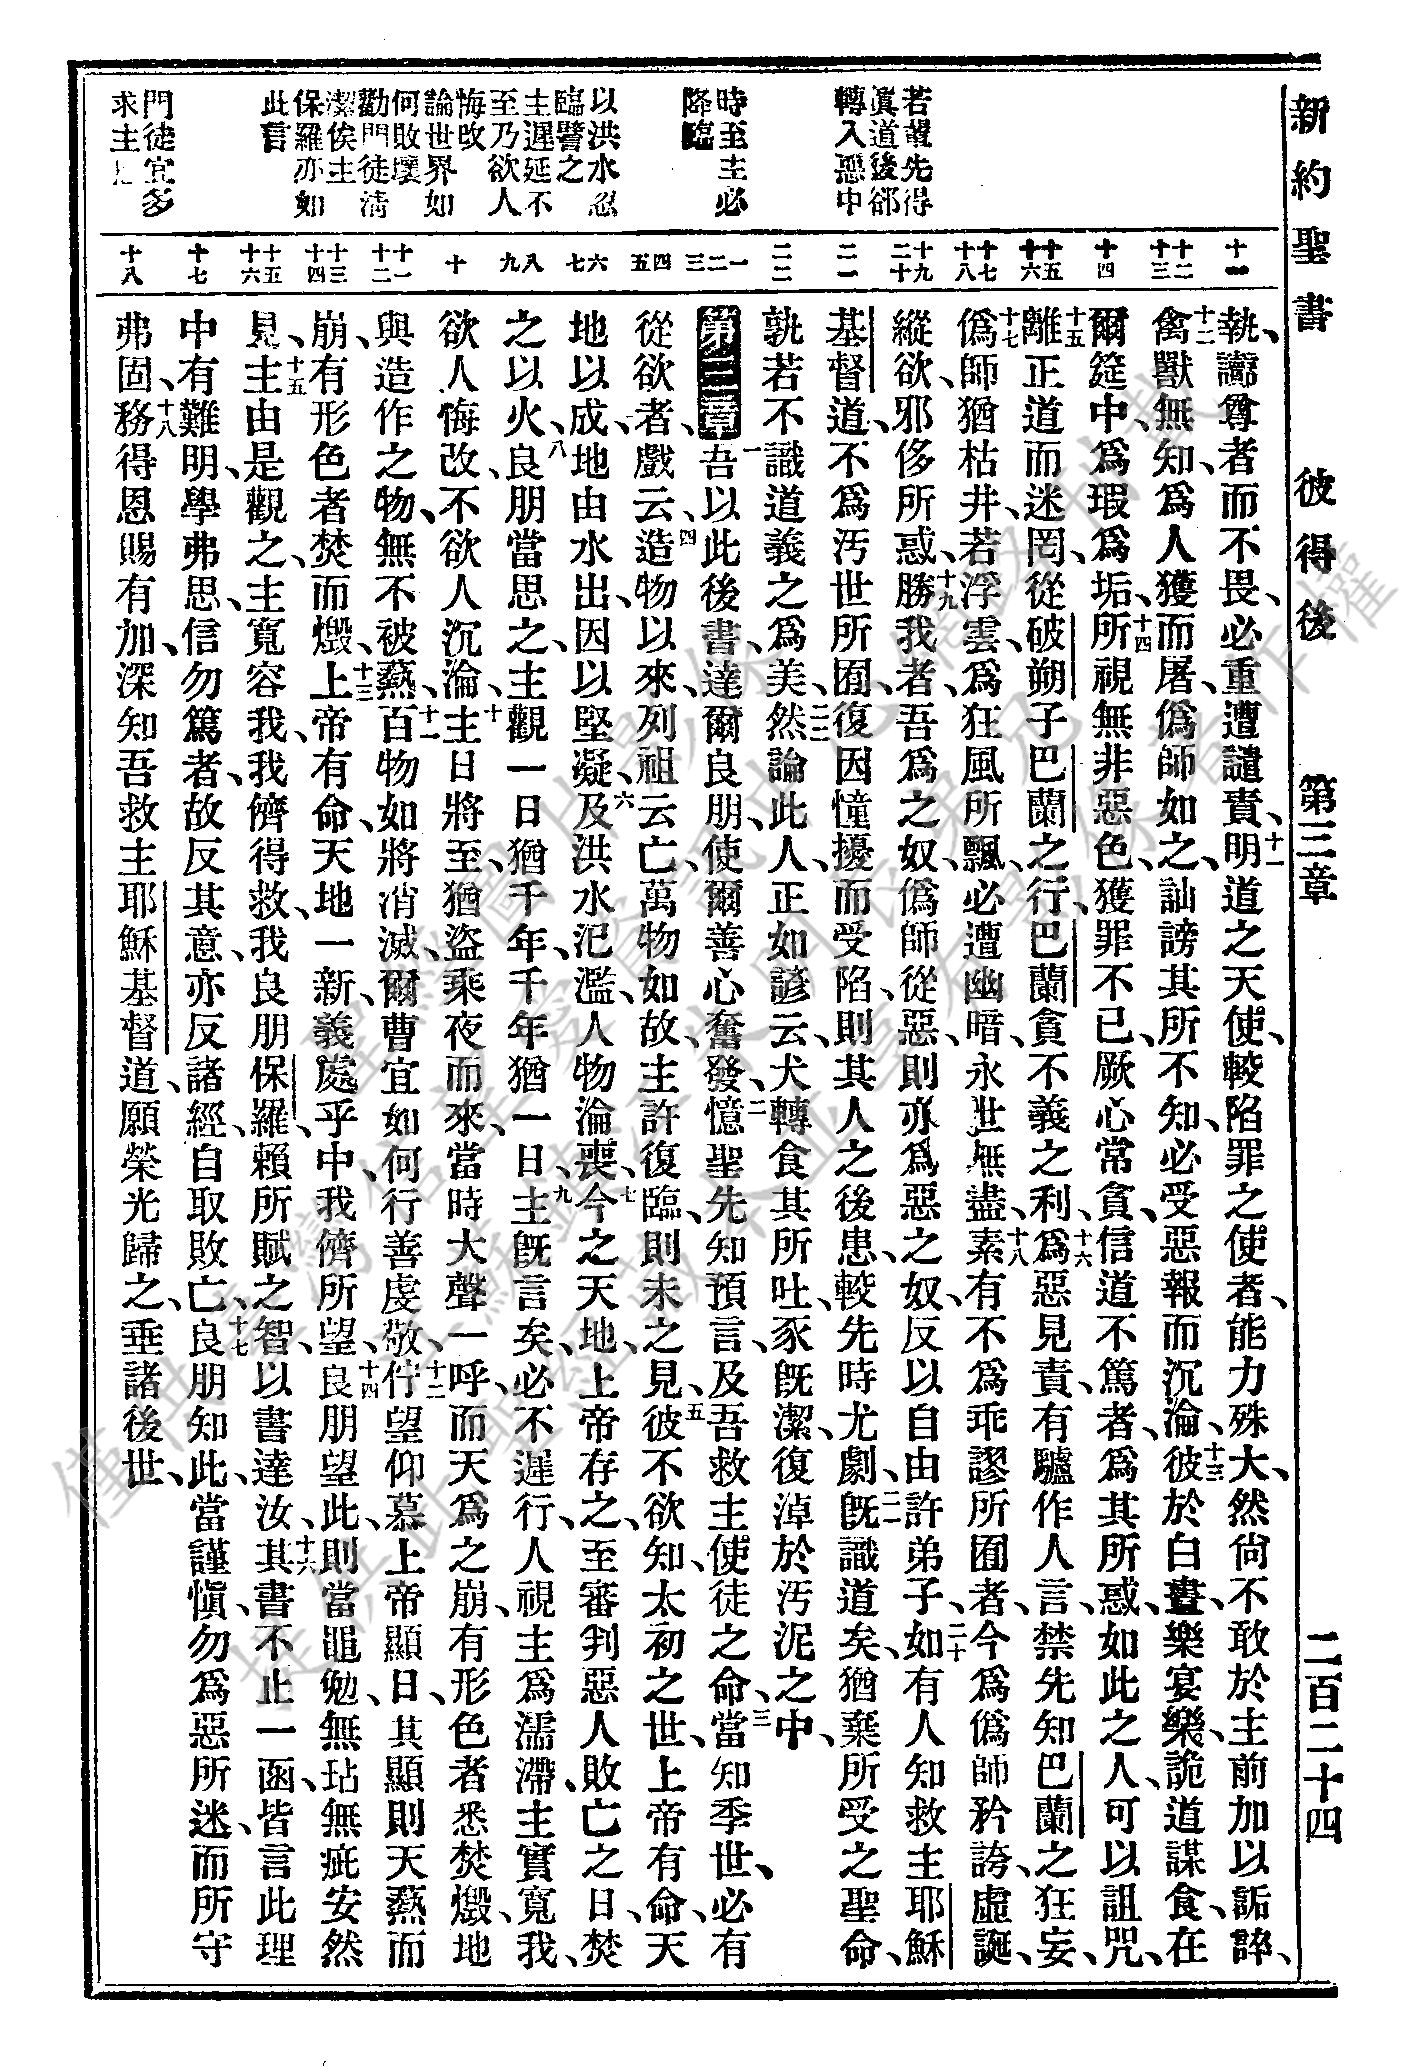 新約聖書 彼得後 第三章 二百二十四
若輩先得
眞道後卻
轉入惡中
時至主必
降臨
以洪水忍
臨譬之
主遲延不
至乃欲人
悔改
論世界如
何敗壞
勸門徒淸
潔俟主
保羅亦如
此言
門徒宜多
求主
十一 十二 十三 十四 十五 十六 十七 十八 十九 二十 二一 二二 一 二 三 四 五 六 七 八 九 十 十一 十二 十三 十四 十五 十六 十七 十八
執、讟尊者而不畏、必重遭譴責、十一明道之天使、較陷罪之使者、能力殊大、然尙不敢於主前加以詬誶、
十二禽獸無知、爲人獲而屠、僞師如之、訕謗其所不知、必受惡報而沉淪、十三彼於白晝樂宴樂、詭道謀食、在
爾筵中、爲瑕爲垢、十四所視無非惡色、獲罪不已、厥心常貪、信道不篤者、爲其所惑、如此之人、可以詛咒、
十五離正道而迷罔、從破朔子巴蘭之行、巴蘭貪不義之利、十六爲惡見責、有驢作人言、禁先知巴蘭之狂妄、
十七僞師猶枯井、若浮雲、爲狂風所飄、必遭幽暗、永世無盡、十八素有不爲乖謬所囿者、今爲僞師矜誇、虛誕、
縱欲、邪侈所惑、十九勝我者、吾爲之奴、僞師從惡、則亦爲惡之奴、反以自由許弟子、二十如有人知救主耶穌
基督道、不爲汚世所囿、復因憧擾而受陷、則其人之後患、較先時尤劇、二一旣識道矣、猶棄所受之聖命、
孰若不識道義之爲美、二二然論此人、正如諺云、犬轉食其所吐、豕旣潔、復淖於汚泥之中、
第三章 一吾以此後書、達爾良朋、使爾善心奮發、二憶聖先知預言、及吾救主使徒之命、三當知季世、必有
從欲者、戲云、四造物以來、列祖云亡、萬物如故、主許復臨、則未之見、五彼不欲知、太初之世、上帝有命、天
地以成、地由水出、因以堅凝、六及洪水氾濫、人物淪喪、七今之天地、上帝存之、至審判惡人敗亡之日、焚
之以火、八良朋當思之、主觀一日猶千年、千年猶一日、九主旣言矣、必不遲行、人視主爲濡滯、主實寬我、
欲人悔改、不欲人沉淪、十主日將至、猶盜乘夜而來、當時大聲一呼、而天爲之崩、有形色者悉焚燬、地
與造作之物、無不被爇、十一百物如將消滅、爾曹宜如何行善虔敬、十二佇望仰慕上帝顯日、其顯則天爇而
崩、有形色者焚而燬、十三上帝有命、天地一新、義處乎中、我儕所望、十四良朋望此、則當黽勉、無玷無疵、安然
見主、十五由是觀之、主寬容我、我儕得救、我良朋保羅、賴所賦之智、以書達汝、十六其書不止一函、皆言此理
中有難明、學弗思、信勿篤者、故反其意、亦反諸經、自取敗亡、十七良朋知此、當謹愼、勿爲惡所迷、而所守
弗固、十八務得恩賜有加、深知吾救主耶穌基督道、願榮光歸之、垂諸後世、